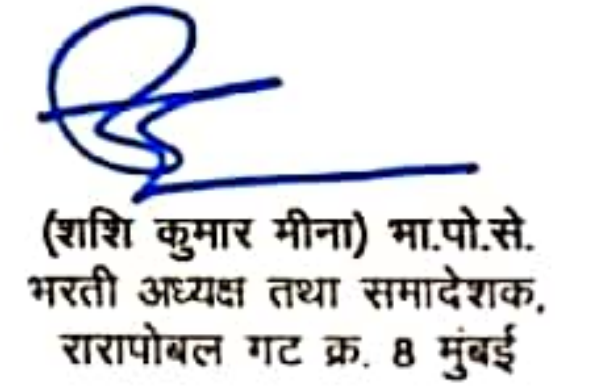 (शशि कुमार मीना) भा.पो.से.
भरती अध्यक्ष तथा समादेशक,
रारापोबल गट क्र. 8 मुंबई